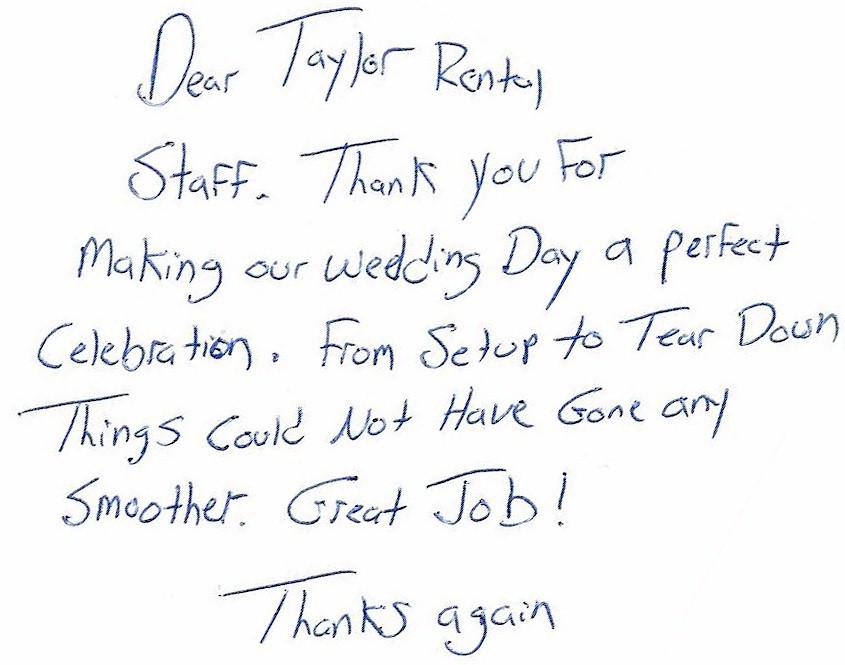 Dear Taylor Rental
Staff. Thank you For
Making our wedding Day a perfect
Celebration. From Setup to Tear Down
Things Could Not Have Gone any
Smoother. Great Job!
Thanks again